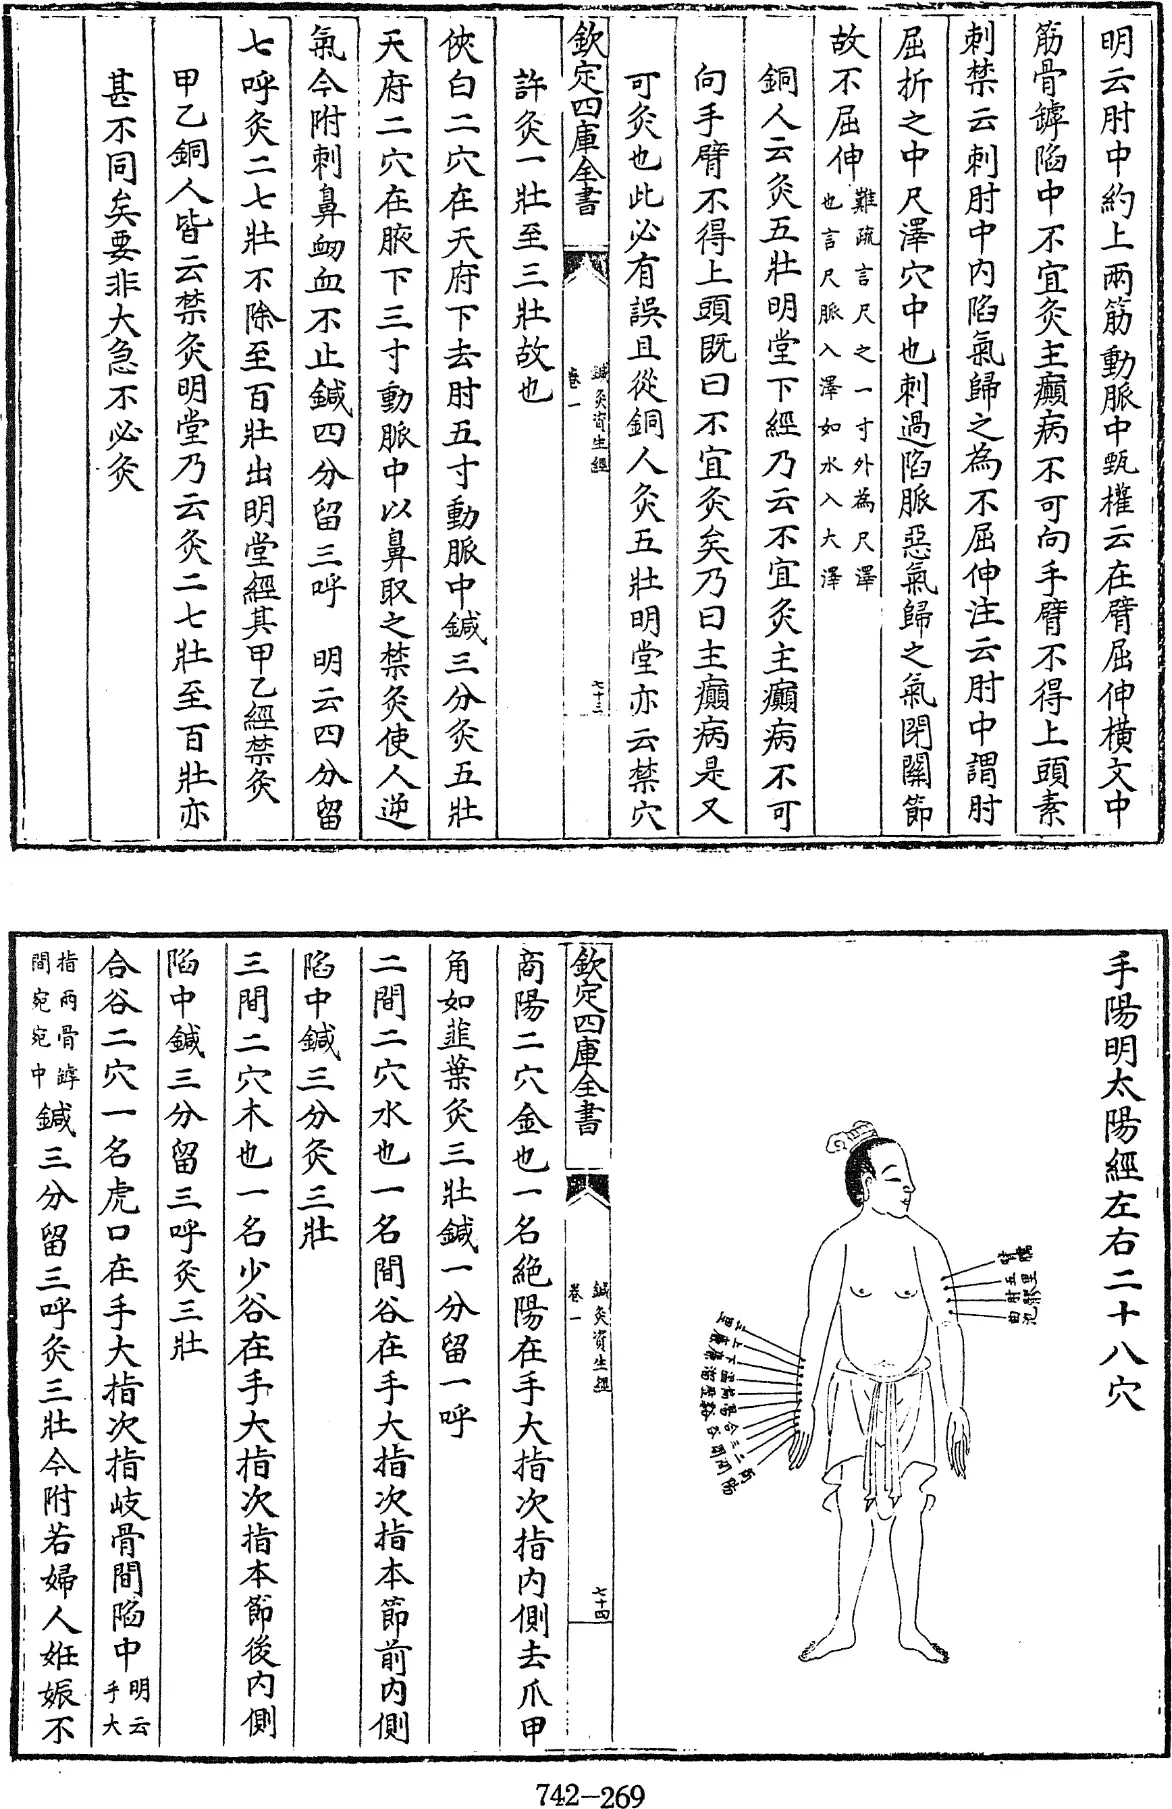 明云肘中約上兩筋動脈中甄權云在臂屈伸橫文中
筋骨罅陷中不宜灸主癲病不可向手臂不得上頭素
刺禁云刺肘中内陷氣歸之為不屈伸注云肘中謂肘
屈折之中尺澤穴中也刺過陷脈惡氣歸之氣閉關節
故不屈伸難疏言尺之一寸外為尺澤也言尺脈入澤如水入大澤
銅人云灸五壯明堂下經乃云不宜灸主癲病不可
向手臂不得上頭既曰不宜灸矣乃曰主癲病是又
可灸也此必有誤且從銅人灸五壯明堂亦云禁穴
欽定四庫全書
鍼灸資生經
卷一
七十三
許灸一壯至三壯故也
俠白二穴在天府下去肘五寸動脈中鍼三分灸五壯
天府二穴在腋下三寸動脈中以鼻取之禁灸使人逆
氣今附刺鼻衂血不止鍼四分留三呼 明云四分留
七呼灸二七壯不除至百壯出明堂經其甲乙經禁灸
甲乙銅人皆云禁灸明堂乃云灸二七壯至百壯亦
甚不同矣要非大急不必灸
手陽明太陽經左右二十八穴
臂臑
五里
肘髎
曲池
三里
上廉
下廉
溫溜
偏歷
陽谿
合谷
三間
二間
商陽
欽定四庫全書
鍼灸資生經
卷一
七十四
商陽二穴金也一名絶陽在手大指次指内側去爪甲
角如韮葉灸三壯鍼一分留一呼
二間二穴水也一名間谷在手大指次指本節前内側
陷中鍼三分灸三壯
三間二穴木也一名少谷在手大指次指本節後内側
陷中鍼三分留三呼灸三壯
合谷二穴一名虎口在手大指次指岐骨間陷中明云手大
指兩骨罅間宛宛中鍼三分留三呼灸三壯今附若婦人姙娠不
742-269